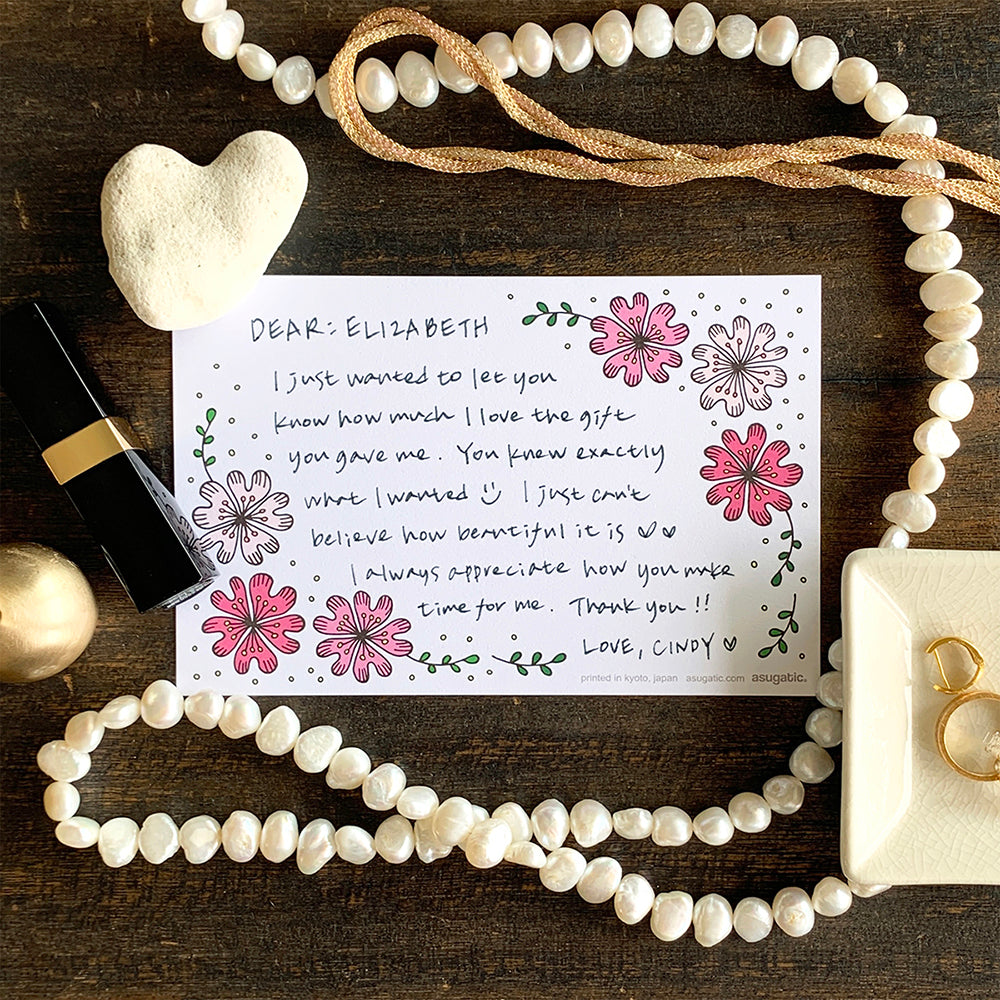 DEAR: ELIZABETH
I just wanted to let you
know how much I love the gift
you gave me. You knew exactly
what I wanted :) I just can't
believe how beautiful it is ♡♡
I always appreciate how you make
time for me. Thank you!!
LOVE, CINDY ♡
printed in kyoto, japan asugatic.com asugatic®